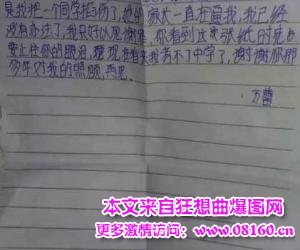 是我把一个同学打伤了,他的
家长一直在逼我,我已经
没有办法了,我只好以死谢罪
你看到这张纸的时
要止住你的眼泪
我考不了中学了,谢谢你那
多年对我的照顾,再见.
万蕾
本文来自狂想曲爆图网
更多激情访问:www.08160.cn